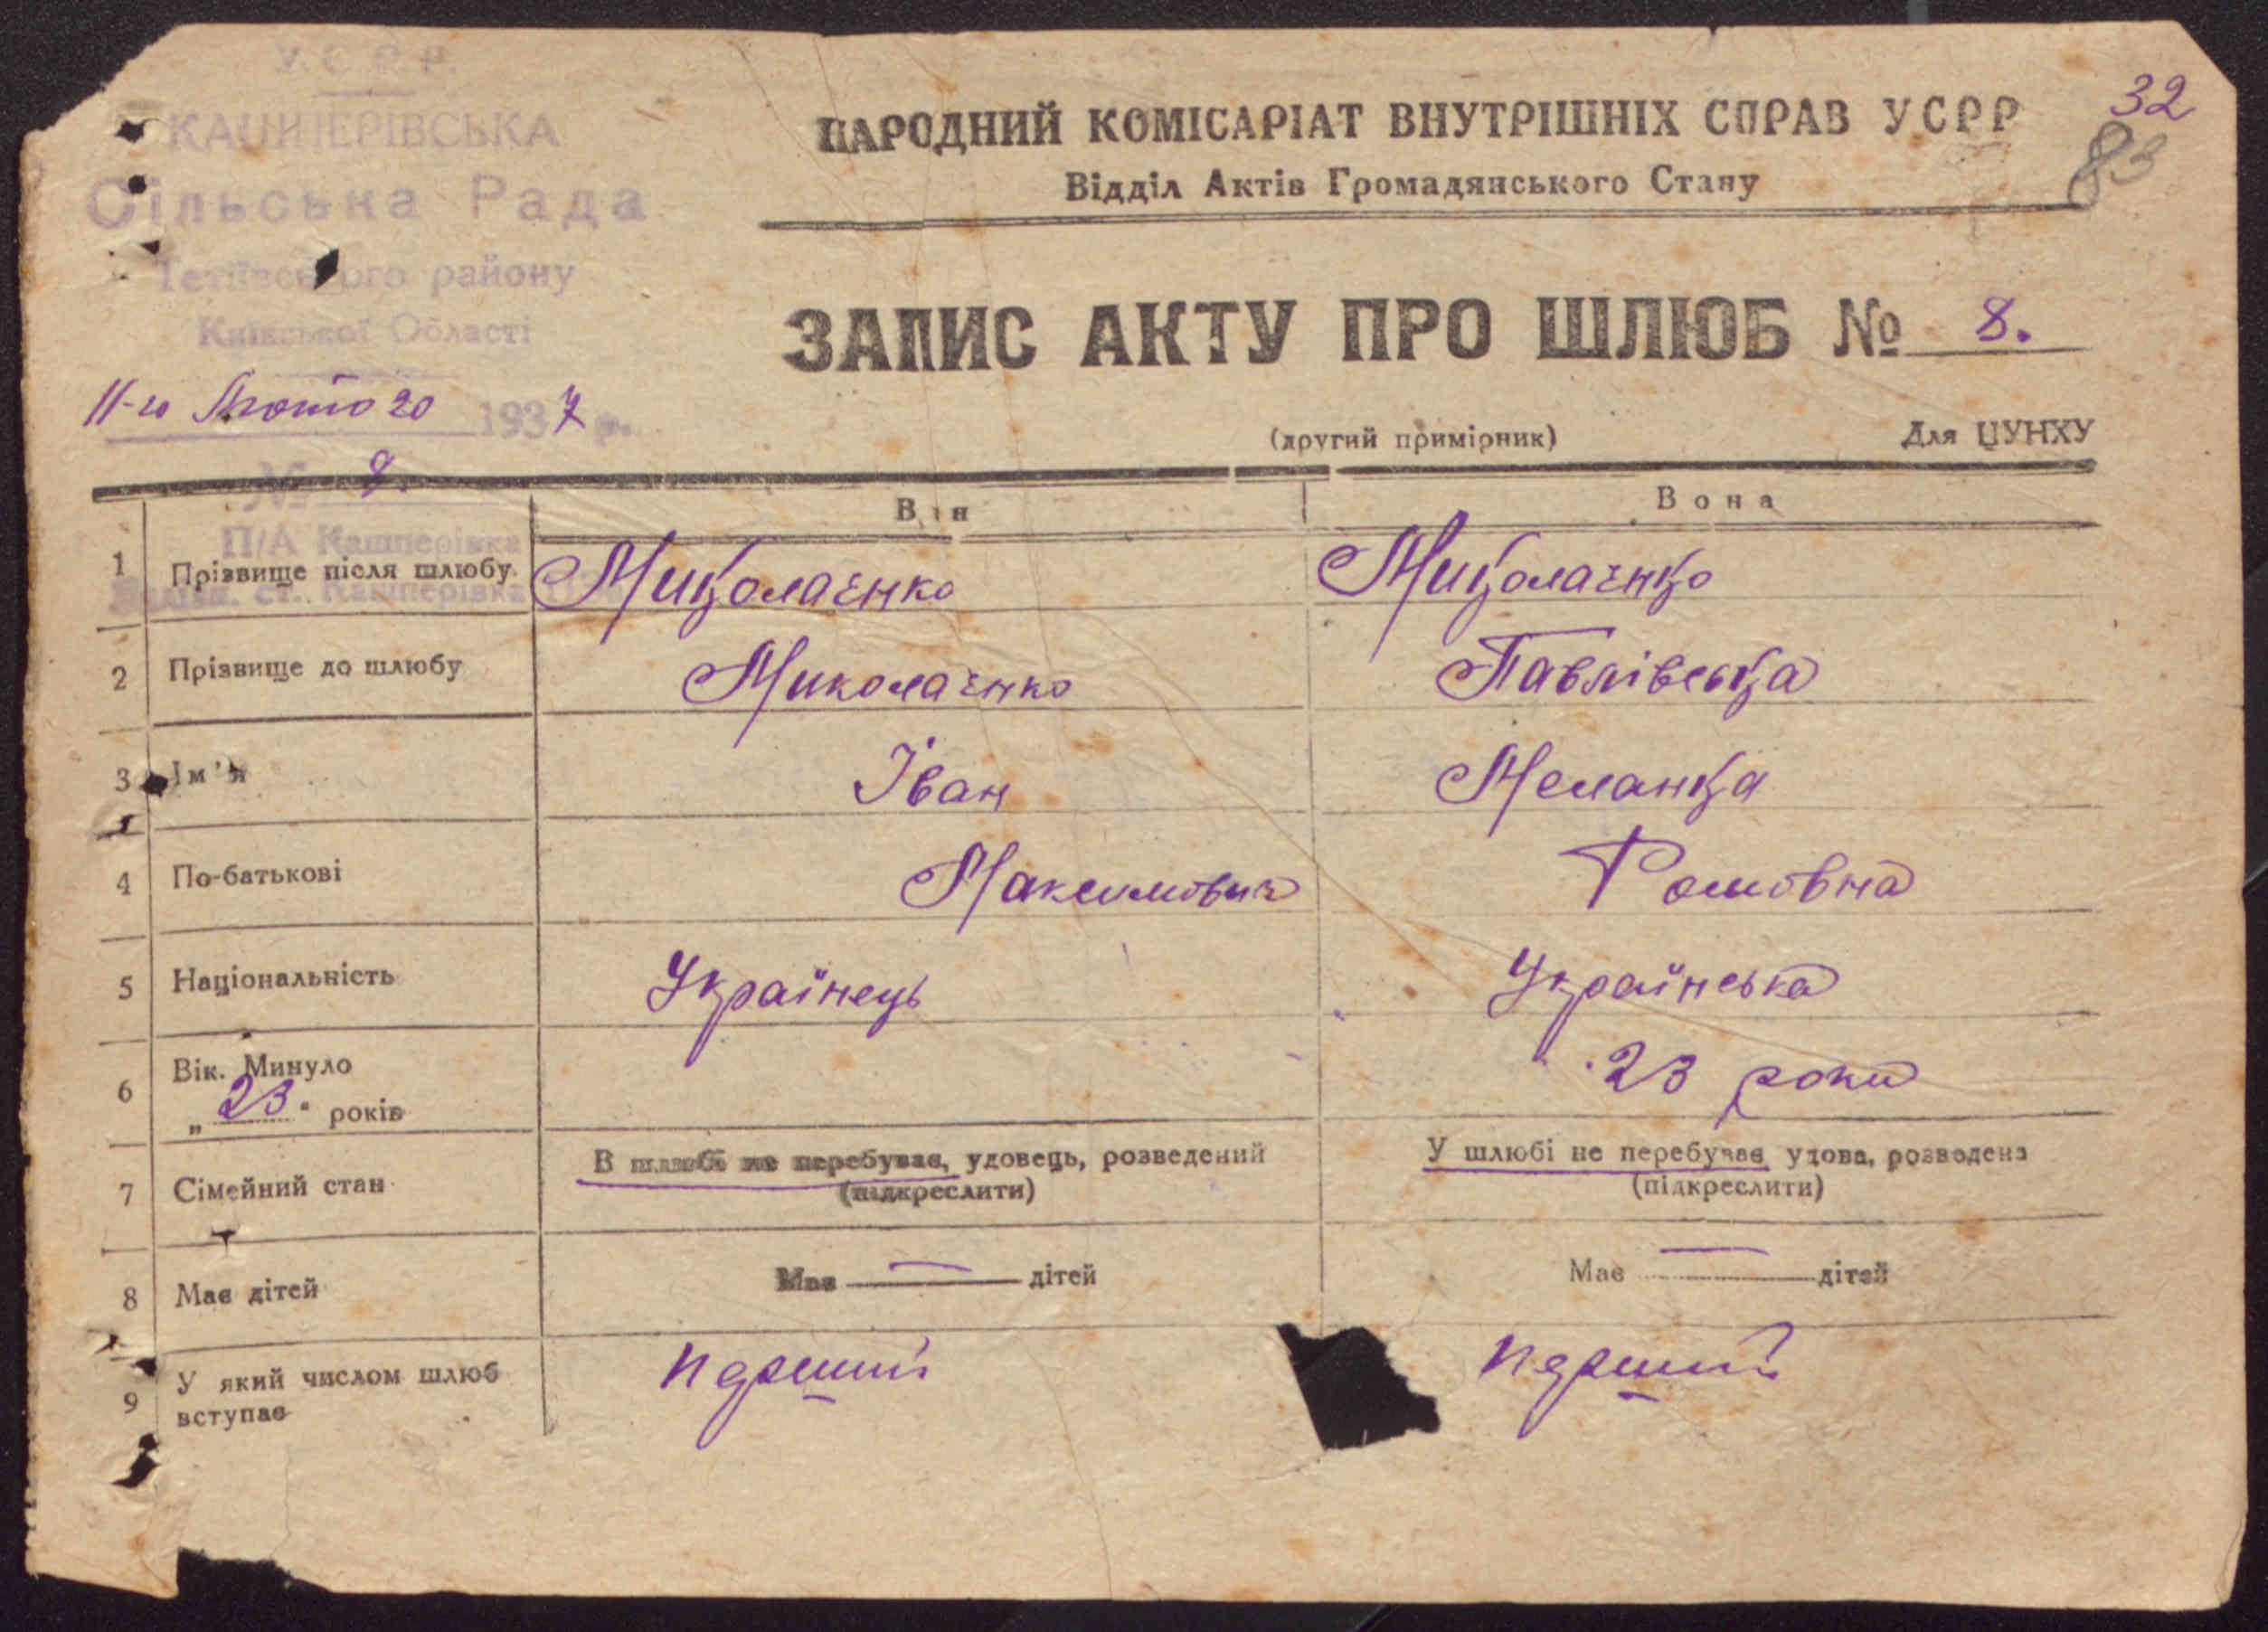 У.С.Р.Р.
КАШПЕРІВСЬКА
Сільська Рада
Тетіївського району
Київської Області
11-го Лютого 1937 р.
№ 8.
П/А Кашперівка
ст. Кашперівка
32
83
НАРОДНИЙ КОМІСАРІАТ ВНУТРІШНІХ СПРАВ УСРР
Відділ Актів Громадянського Стану
ЗАПИС АКТУ ПРО ШЛЮБ № 8.
(другий примірник) Для ЦУНХУ
Він Вона
1 Прізвище після шлюбу Миколаенко Миколаенко
2 Прізвище до шлюбу Миколаенко Павлівська
3 Ім'я Іван Меланка
4 По-батькові Максимович Ромовна
5 Національність Українець Українська
6 Вік. Минуло
„ 23 " років 23 роки
7 Сімейний стан В шлюбі не перебуває, удовець, розведений У шлюбі не перебуває удова, розведена
(підкреслити) (підкреслити)
8 Має дітей Має — дітей Має — дітей
9 У який числом шлюб
вступає перший перший